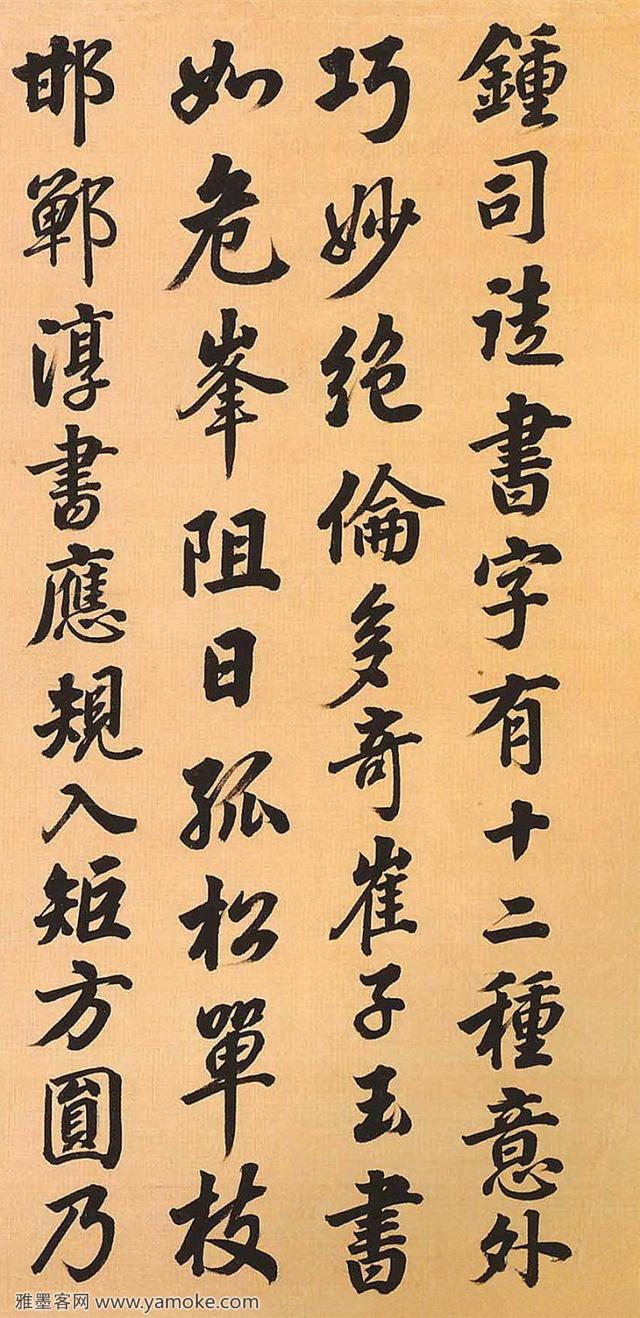 鍾司徒書字有十二種意外
巧妙絕倫多奇崔子玉書
如危峯阻日孤松單枝
邯鄲淳書應規入矩方圓乃
雅墨客网 www.yamoke.com